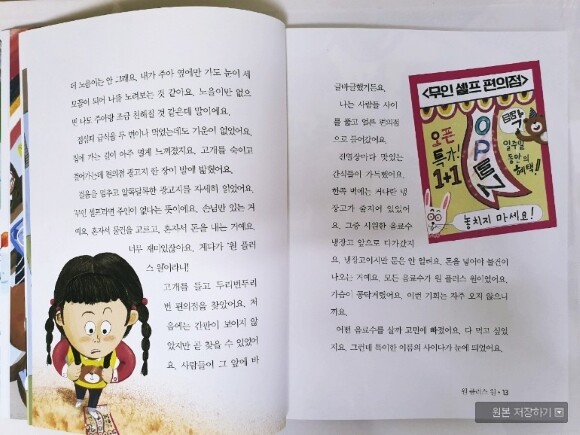 더 노을이는 안 그래요. 내가 주아 옆에만 가도 눈이 세
모꼴이 되어 나를 노려보는 것 같아요. 노을이만 없으
면 나도 주아랑 조금 친해질 것 같은데 말이에요.
점심때 급식을 두 번이나 먹었는데도 기운이 없었어요.
집에 가는 길이 아주 멀게 느껴졌지요. 고개를 숙이고
걸어가는데 편의점 광고지 한 장이 발에 밟혔어요.
걸음을 멈추고 알록달록한 광고지를 자세히 읽었어요.
무인 셀프라면 주인이 없다는 뜻이에요. 손님만 있는 거
예요. 혼자서 물건을 고르고, 혼자서 돈을 내는 거예요.
너무 재미있잖아요. 게다가 '원 플러
스 원'이라니!
고개를 들고 두리번두리
번 편의점을 찾았어요. 처
음에는 간판이 보이지 않
았지만 곧 찾을 수 있었어
요. 사람들이 그 앞에 바
글바글했거든요.
나는 사람들 사이
를 뚫고 얼른 편의점
으로 들어갔어요.
진열장마다 맛있는
간식들이 가득했어요.
한쪽 벽에는 커다란 냉
장고가 줄지어 있었어
요. 그중 시원한 음료수
냉장고 앞으로 다가갔지
요. 냉장고이지만 문은 안 열려요. 돈을 넣어야 물건이
나오는 거예요. 모든 음료수가 원 플러스 원이었어요.
가슴이 콩닥거렸어요. 이런 기회는 자주 오지 않으니
까요.
어떤 음료수를 살까 고민에 빠졌어요. 다 먹고 싶었
지요. 그런데 특이한 이름의 사이다가 눈에 띄었어요.
<무인 셀프 편의점>
오픈
특가!
1+1
OPEN
일주일
동안의
혜택!
놓치지 마세요!
원 플러스 원 • 13
원본 저장하기